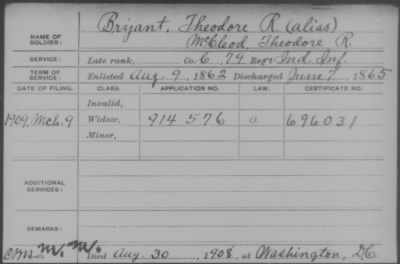 Bryant, Theodore R. (alias)
NAME OF SOLDIER: McCleod, Theodore R.
SERVICE: Late rank, Co. C, 79 Reg't Ind. Inf.
TERM OF SERVICE: Enlisted Aug. 9, 1862 Discharged June 7, 1865
DATE OF FILING. CLASS. APPLICATION NO. LAW. CERTIFICATE NO.
Invalid,
1909, Mch. 9 Widow, 914 576 a 696031
Minor,
ADDITIONAL SERVICES:
REMARKS:
Died Aug. 30, 1908, at Washington, DC